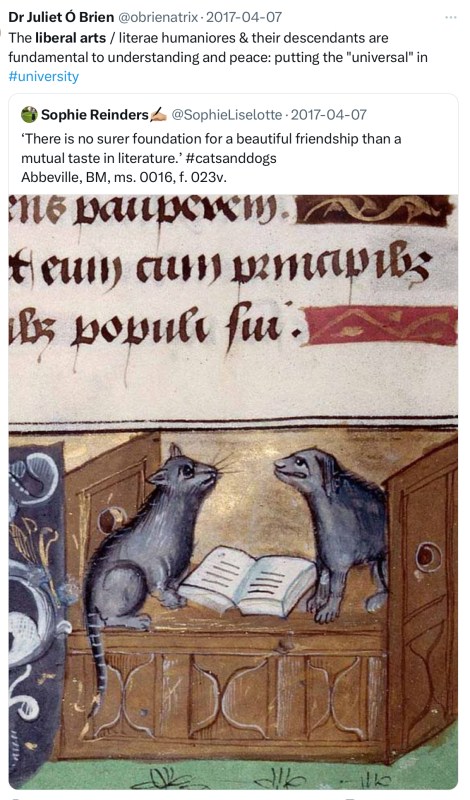 Dr Juliet Ó Brien @obrienatrix · 2017-04-07
The liberal arts / literae humaniores & their descendants are
fundamental to understanding and peace: putting the "universal" in
#university
Sophie Reinders✍🏼 @SophieLiselotte · 2017-04-07
‘There is no surer foundation for a beautiful friendship than a
mutual taste in literature.’ #catsanddogs
Abbeville, BM, ms. 0016, f. 023v.
ens pauperem.
t eum cum principibꝫ
ibꝫ populi sui.